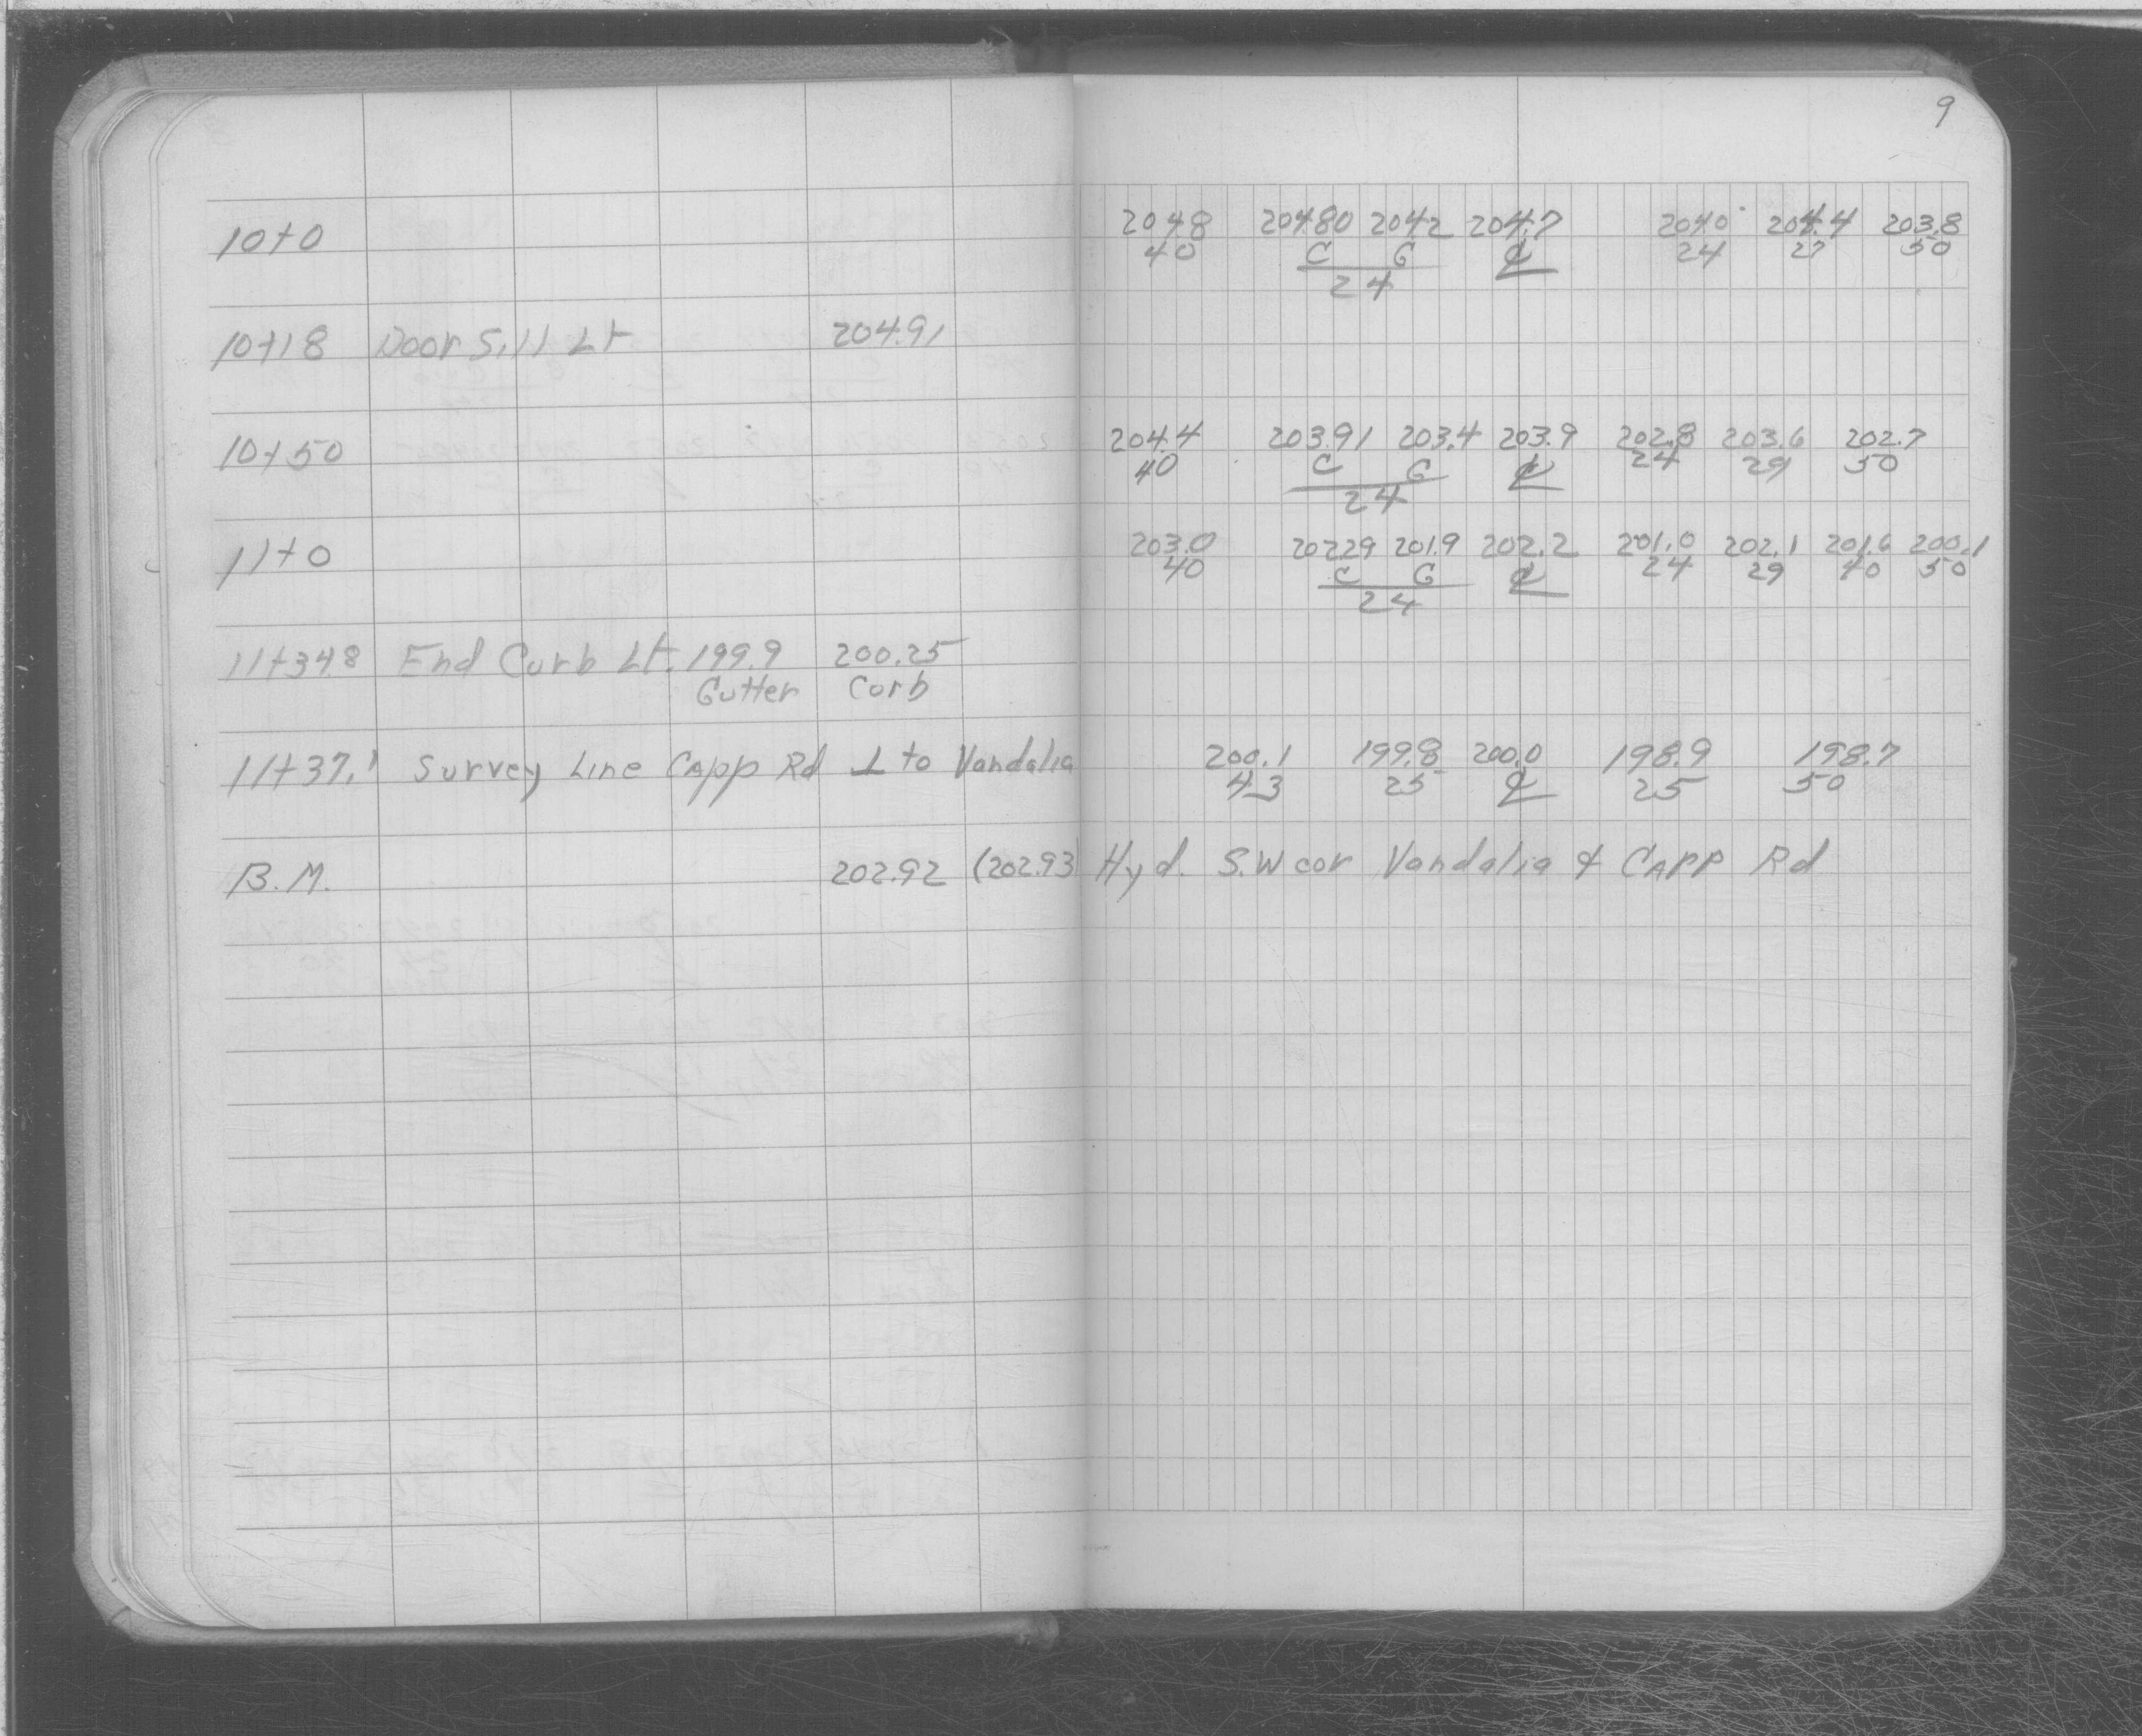 9
10+0 204.8 204.80 204.2 204.7 204.0 204.4 203.8
40 C G ℄ 24 27 50
24
10+18 Door Sill Lt 204.91
10+50 204.4 203.91 203.4 203.9 202.8 203.6 202.7
40 C G ℄ 24 29 50
24
11+0 203.0 202.29 201.9 202.2 201.0 202.1 201.6 200.1
40 C G ℄ 24 29 40 50
24
11+34.8 End Curb Lt. 199.9 200.25
Gutter Curb
11+37.1 Survey Line Capp Rd ⊥ to Vandalia 200.1 199.8 200.0 198.9 198.7
43 25 ℄ 25 50
B.M. 202.92 (202.93) Hyd. S.W cor Vandalia & Capp Rd